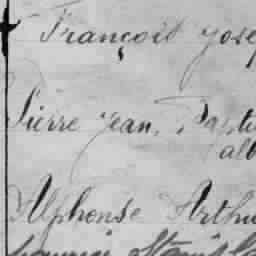 François Jose
Pierre Jean, Baptis
(alb
Alphonse Arthu